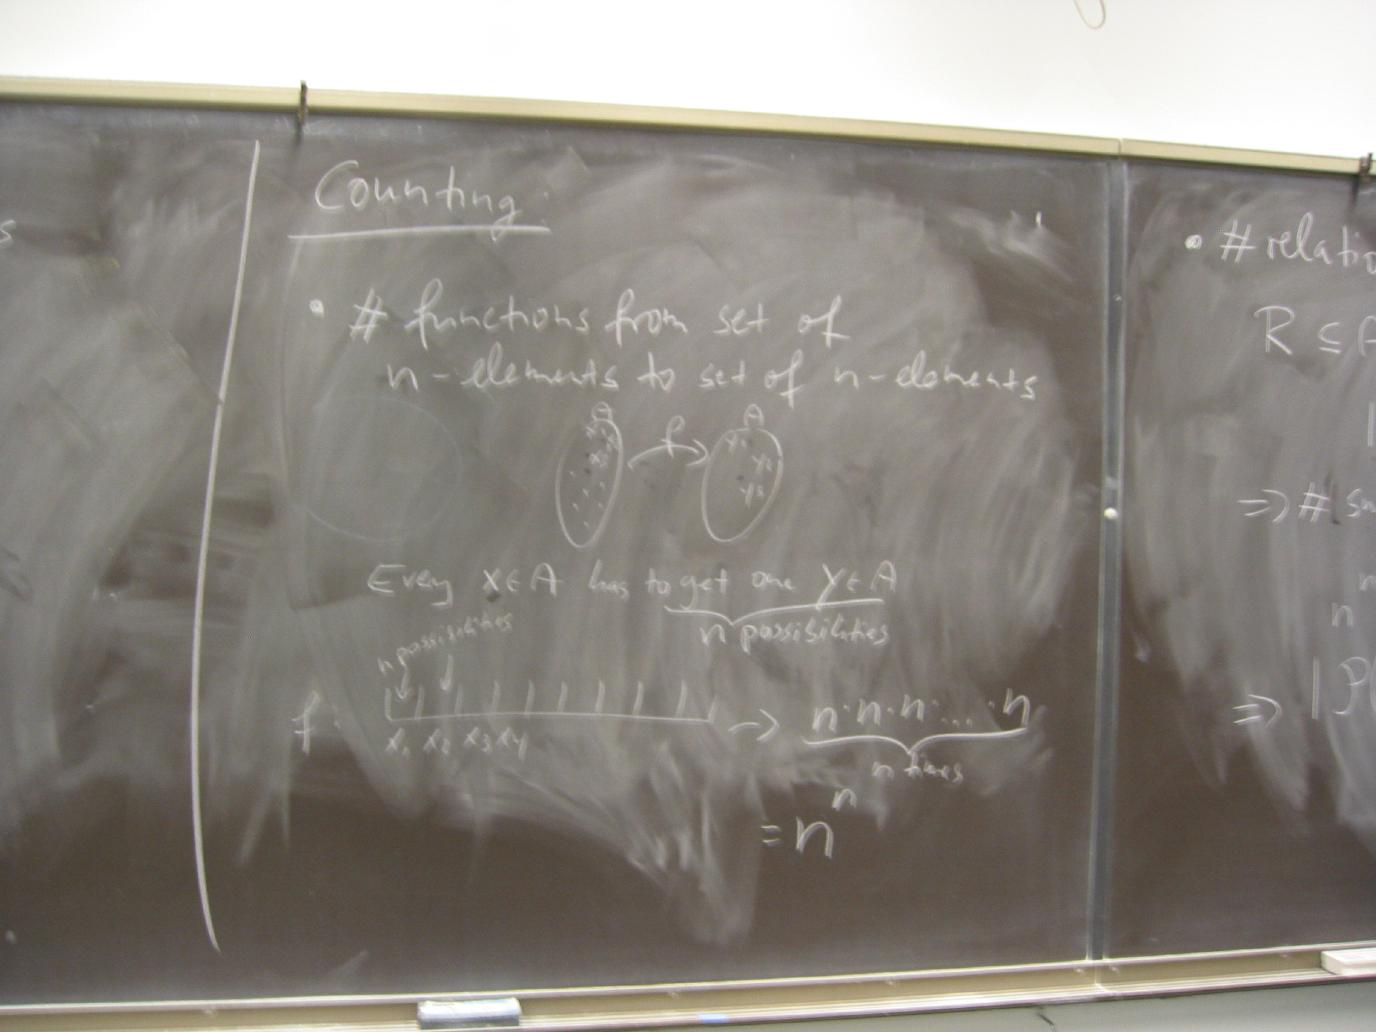 s
Counting
• # functions from set of
n-elements to set of n-elements
A A
f
x₁ y₁
x₂ y₂
y₃
Every x∈A has to get one y∈A
n possibilities
n possibilities
f
x₁ x₂ x₃ x₄
→ n·n·n·...·n
n times
= nⁿ
• # relatio
R ⊆ A
|
⇒ #
n
⇒ |P(